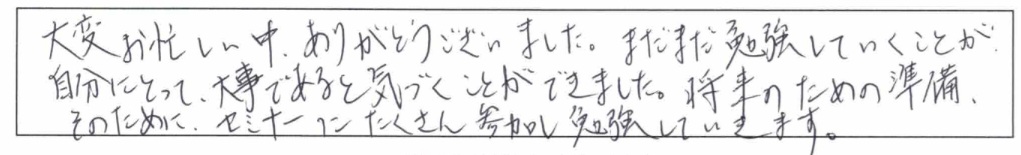 大変お忙しい中、ありがとうございました。まだまだ勉強していくことが、
自分にとって、大事であると気づくことができました。将来のための準備、
そのために、セミナーにたくさん参加し勉強していきます。